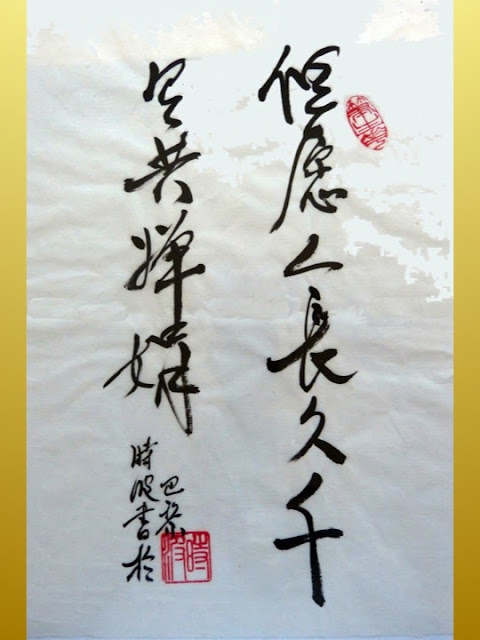 但愿人長久千
里共嬋娟
時波書於
巴黎
時波